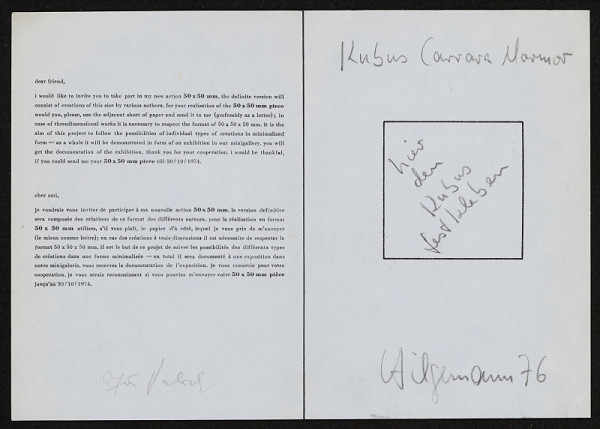 dear friend,
i would like to invite you to take part in my new action 50 x 50 mm, the definite version will
consist of creations of this size by various authors. for your realisation of the 50 x 50 mm piece
would you, please, use the adjacent sheet of paper and send it to me (preferably as a letter); in
case of threedimensional works it is necessary to respect the format of 50 x 50 x 50 mm. it is the
aim of this project to follow the possibilities of individual types of creations in minimalized
form — as a whole it will be demonstrated in form of an exhibition in our minigallery. you will
get the documentation of the exhibition. thank you for your cooperation. i would be thankful,
if you could send me your 50 x 50 mm piece till 20/10/1974.
cher ami,
je voudrais vous inviter de participer à ma nouvelle action 50 x 50 mm. la version definitive
sera composée des créations de ce format des différents auteurs. pour la réalisation en format
50 x 50 mm utilisez, s'il vous plaît, le papier d'à côté, lequel je vous prie de m'envoyer
(le mieux comme lettre); en cas des créations à trois dimensions il est nécessaire de respecter le
format 50 x 50 x 50 mm. il est le but de ce projet de suivre les possibilités des différents types
de créations dans une forme minimalisée — en total il sera documenté à une exposition dans
notre minigalerie. vous recevrez la documentation de l'exposition. je vous remercie pour votre
cooperation. je vous serais reconnaissant si vous pouviez m'envoyer votre 50 x 50 mm pièce
jusqu'au 20/10/1974.
Kubus Carrara Marmor
hier
den
Kubus
festkleben
Hilgemann 76